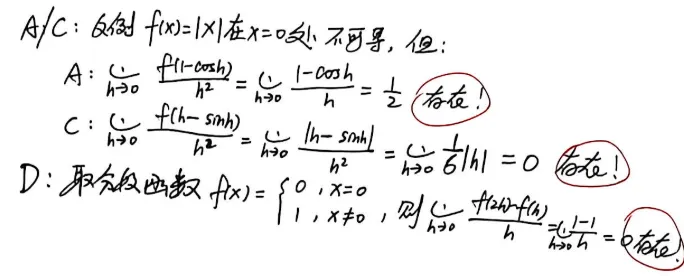 A/C: 反例 f(x)=|x|在x=0处不可导, 但:
A: lim_{h→0} f(1-cosh)/h² = lim_{h→0} 1-cosh/h = 1/2 存在!
C: lim_{h→0} f(h-sinh)/h² = lim_{h→0} |h-sinh|/h² = lim_{h→0} 1/6|h| = 0 存在!
D: 取分段函数 f(x) = { 0, x=0
1, x≠0, 则 lim_{h→0} f(2h)-f(h)/h = lim_{h→0} 1-1/h = 0 存在!